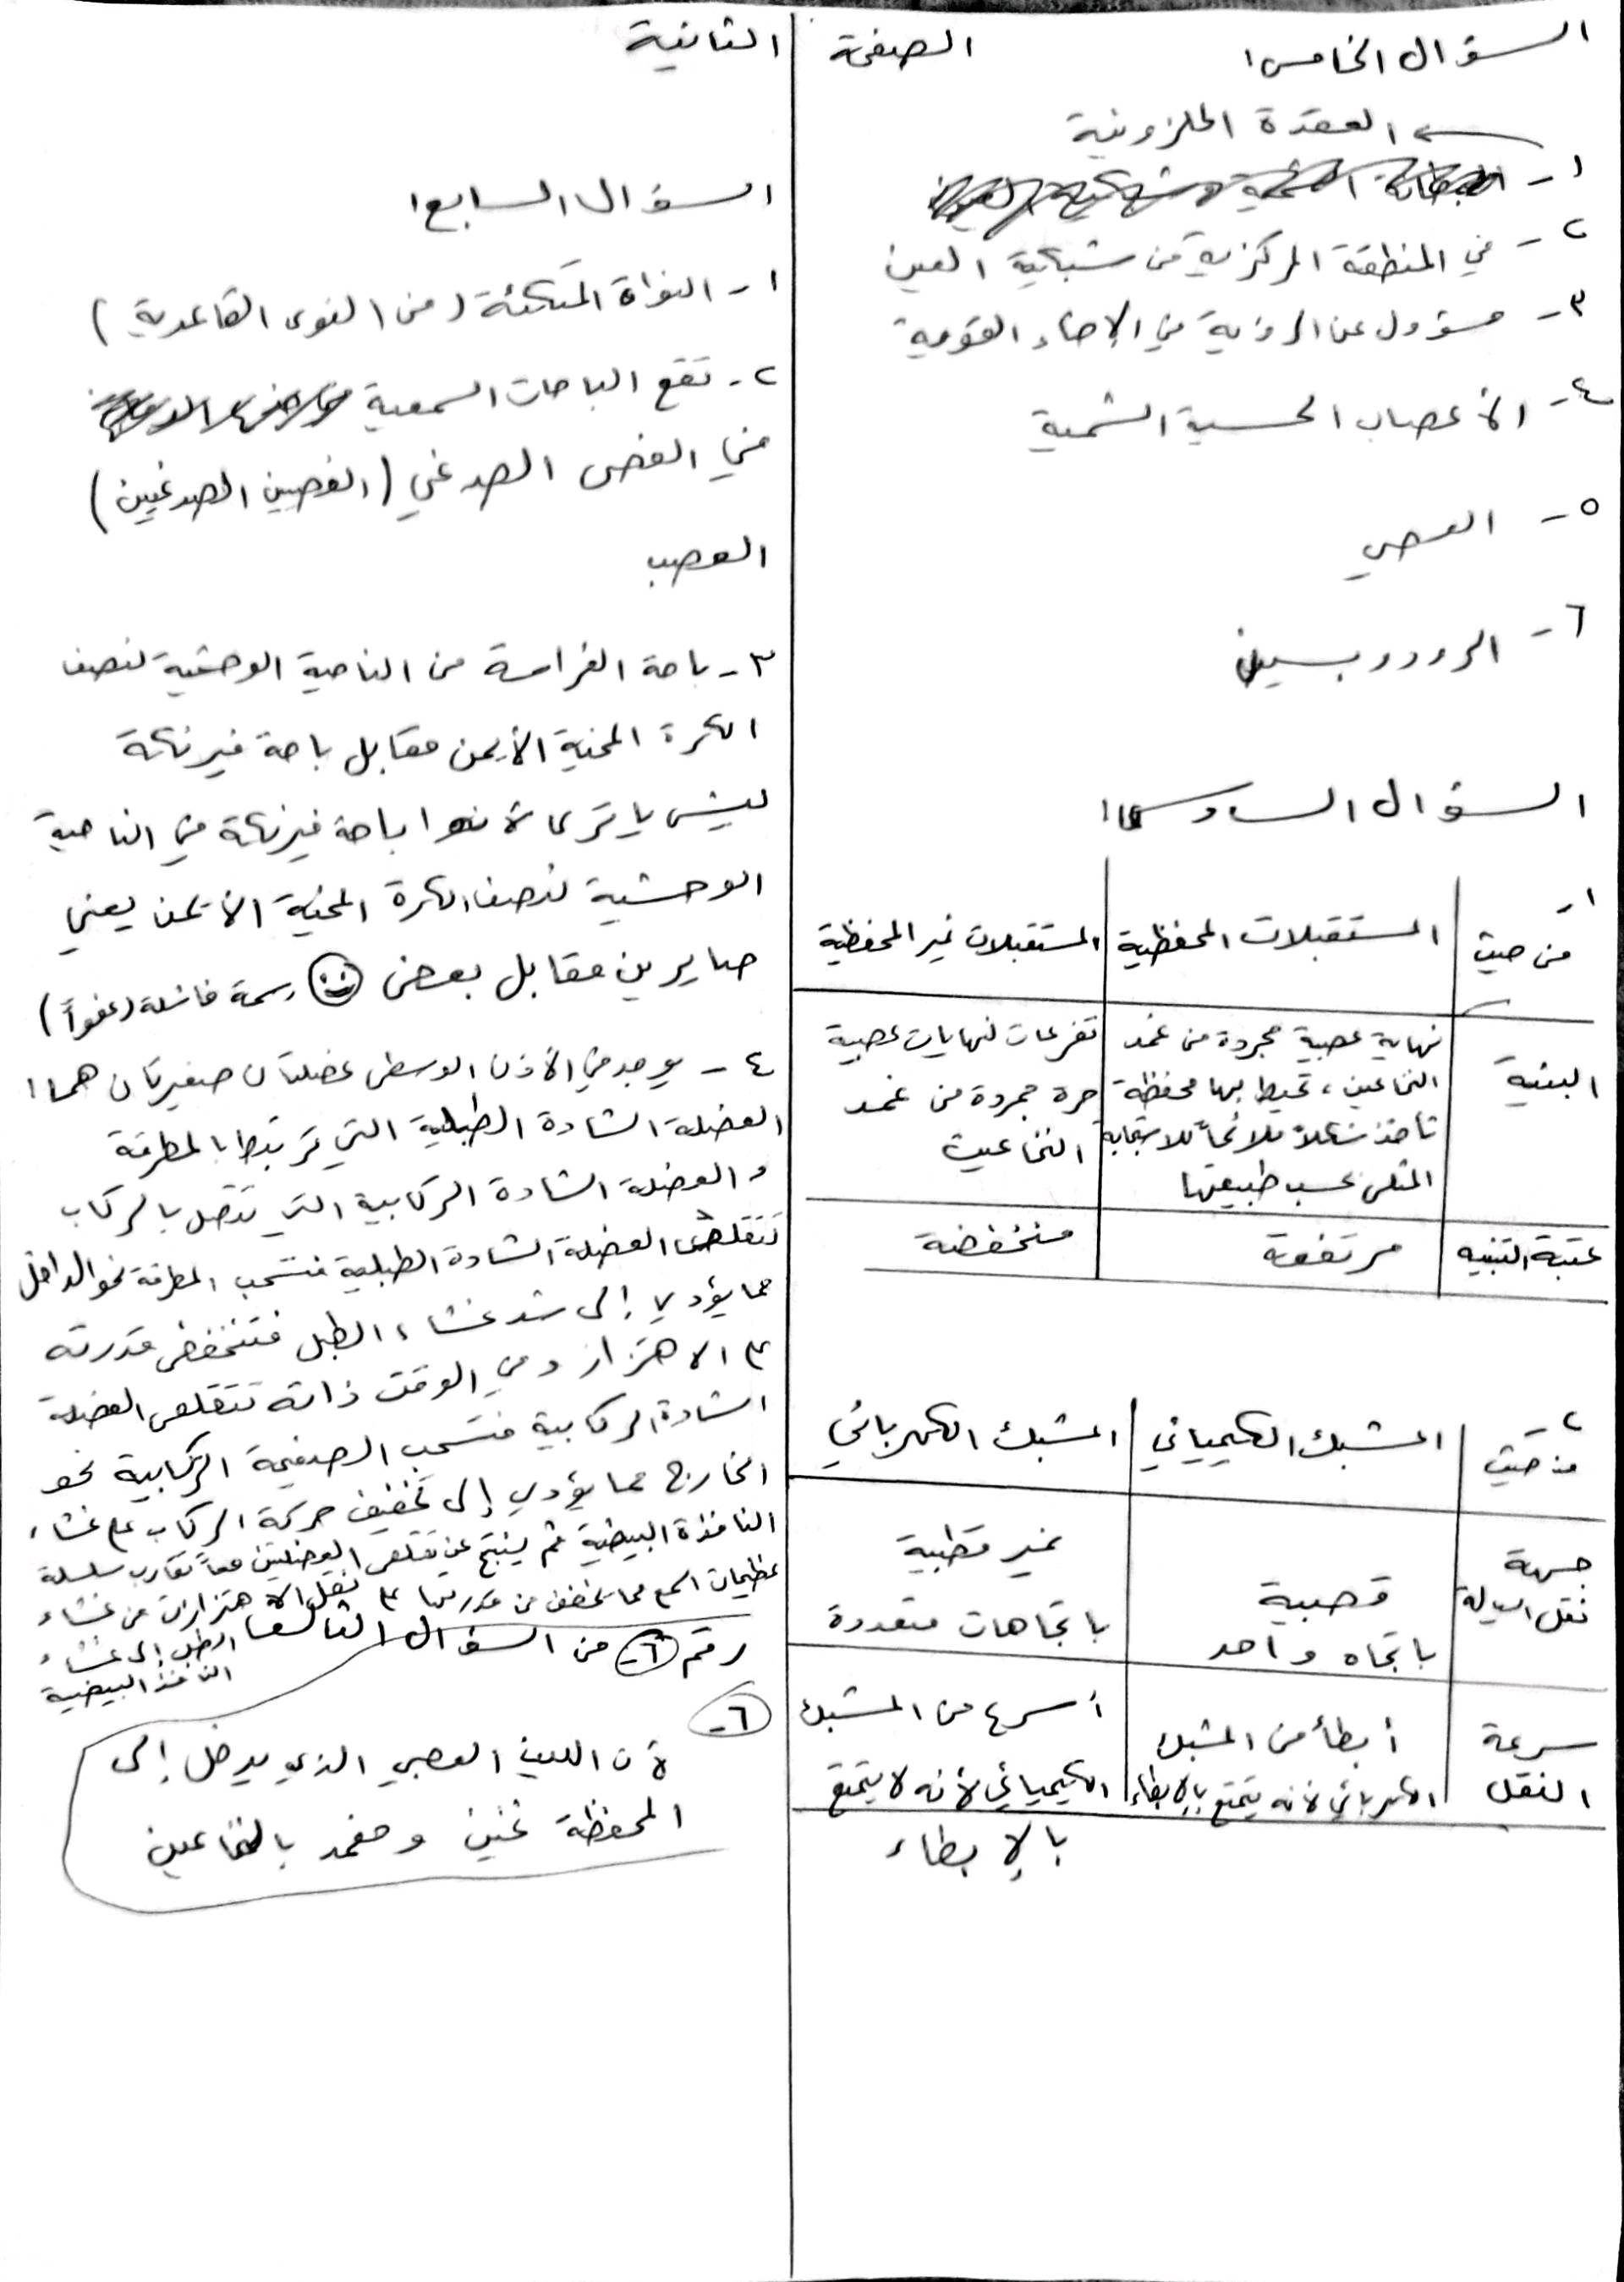 السؤال الخامس:
الصفحة الثانية
العقدة الحلزونية
١-
٢- في المنطقة المركزية من شبكية العين
٣- مسؤول عن الرؤية في الإضاءة القوية
٤- الأعصاب الحسية الشمية
٥- العصي
٦- الرودوبسين
السؤال السادس:
١- من حيث | المستقبلات المحفظية | المستقبلات غير المحفظية
البنية | نهاية عصبية مجردة من غمد | تفرعات لنهايات عصبية
النخاعين، تحيط بها محفظة | حرة مجردة من غمد
تأخذ شكلاً ملائماً للاستجابة | النخاعين
المثلى بحسب طبيعتها
عتبة التنبيه | مرتفعة | منخفضة
٢- من حيث | المشبك الكيميائي | المشبك الكهربائي
جهة | قصبية | غير قطبية
نقل السيالة | باتجاه واحد | باتجاهات متعددة
سرعة | أبطأ من المشبك | أسرع من المشبك
النقل | الكهربائي لأنه يتمتع بالإبطاء | الكيميائي لأنه لا يتمتع
بالإبطاء
السؤال السابع:
١- النواة المتكئة (من النوى القاعدية)
٢- تقع الباحات السمعية
في الفص الصدغي (الفصين الصدغيين)
العصب
٣- باحة الفراسة من الناحية الوحشية لنصف
الكرة المخية الأيمن مقابل باحة فيرنكة
ليش يا ترى لأنو باحة فيرنكة في الناحية
الوحشية لنصف الكرة المخية الأيمن يعني
صايرين مقابل بعض رسمة فاشلة (عفواً)
٤- يوجد في الأذن الوسطى عضلتان صغيرتان هما:
العضلة الشادة الطبلية التي ترتبط بالمطرقة
و العضلة الشادة الركابية التي تتصل بالركاب
تتقلص العضلة الشادة الطبلية فتسحب المطرقة نحو الداخل
مما يؤدي إلى شد غشاء الطبل فتنخفض قدرته
ع الاهتزاز وفي الوقت ذاته تتقلص العضلة
الشادة الركابية فتسحب الصفيحة الركابية نحو
الخارج مما يؤدي إلى تخفيف حركة الركاب ع غشاء
النافذة البيضية ثم ينتج عن تقلص العضلتين معاً تقارب سلسلة
عظيمات السمع مما يخفض من قدرتها ع نقل الاهتزازات من غشاء
الطبل إلى غشاء
النافذة البيضية
رقم ٦- من السؤال الثالث
٦-
لأن الليف العصبي الذي يدخل إلى
المحفظة ثخين ومغمد بالنخاعين